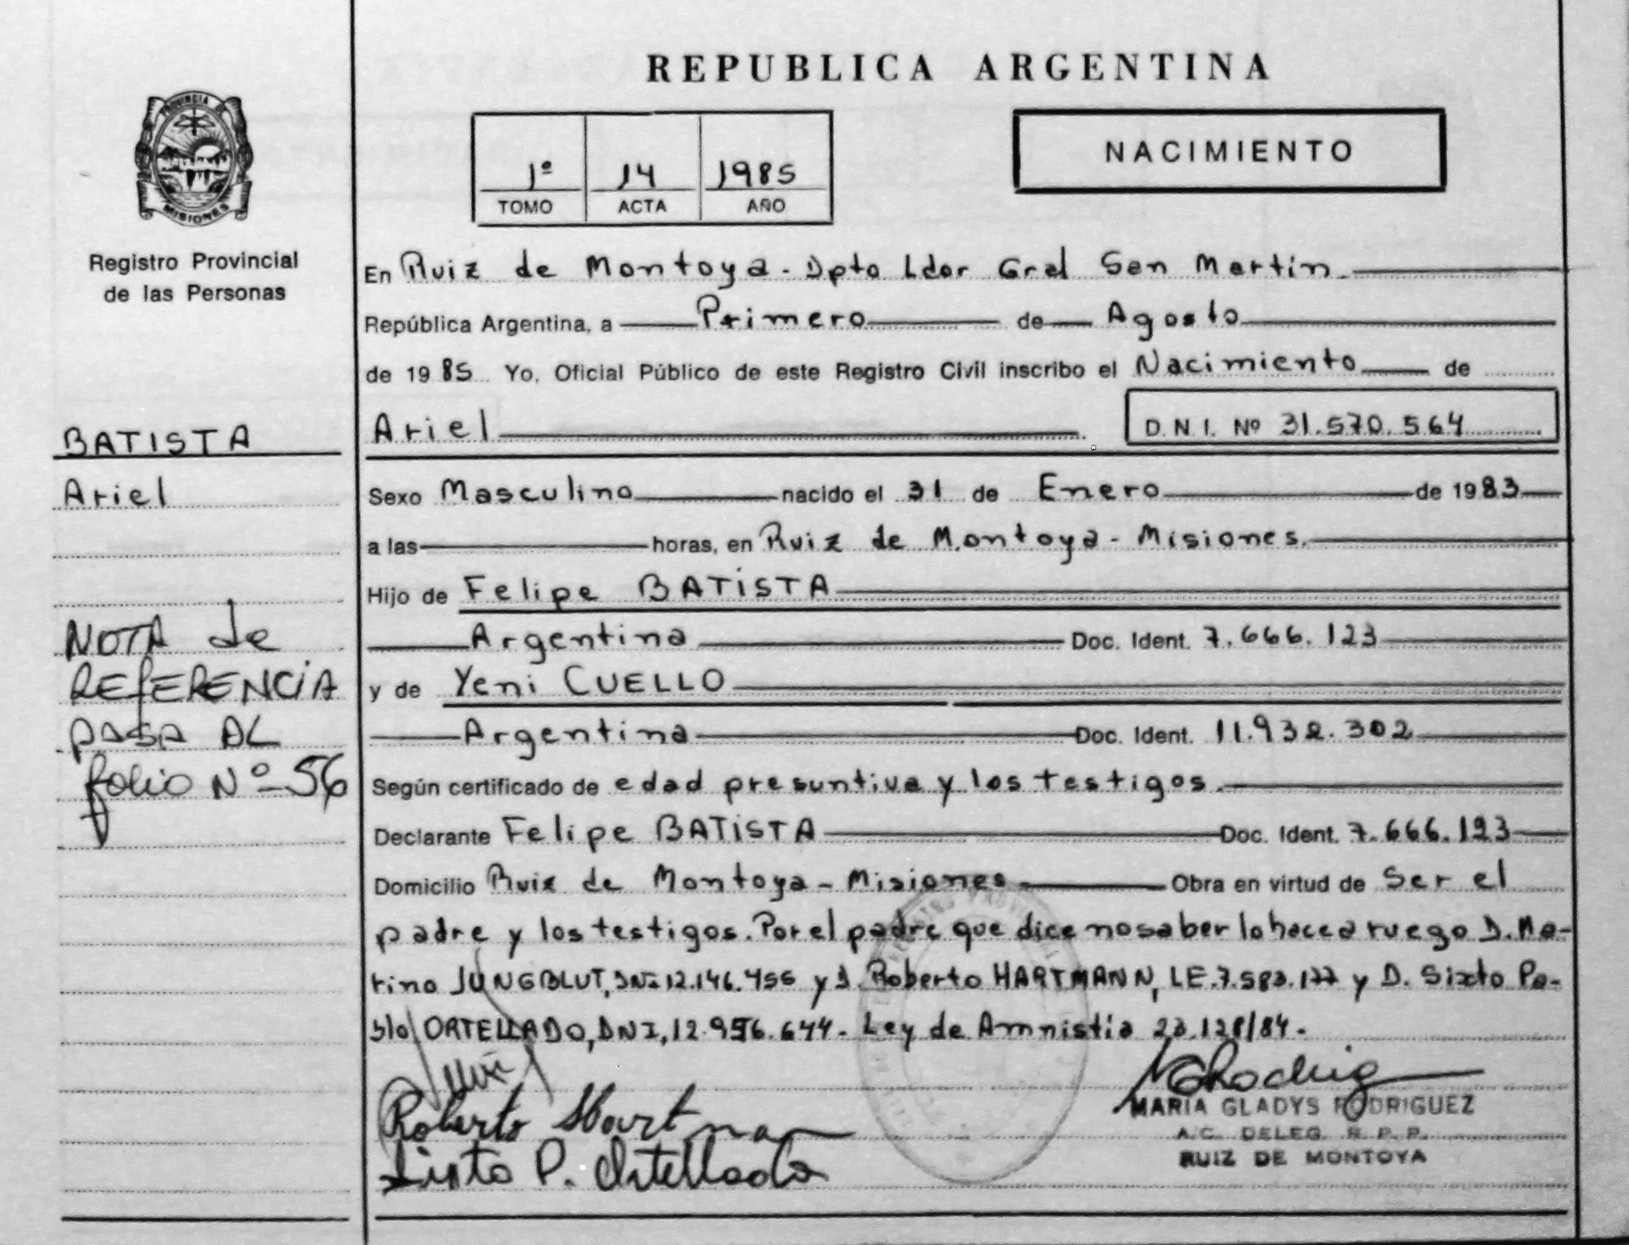 REPUBLICA ARGENTINA
PROVINCIA DE
MISIONES
Registro Provincial
de las Personas
1º 14 1985
TOMO ACTA AÑO
NACIMIENTO
En Ruiz de Montoya - Dpto Ldor Gral San Martín.
República Argentina, a Primero de Agosto
de 1985 Yo, Oficial Público de este Registro Civil inscribo el Nacimiento de
Ariel D.N.I. Nº 31.570.564
BATISTA
Ariel
Sexo Masculino nacido el 31 de Enero de 1983
a las horas, en Ruiz de Montoya - Misiones.
Hijo de Felipe BATISTA
Argentina Doc. Ident. 7.666.123
y de Yeni CUELLO
Argentina Doc. Ident. 11.932.302
NOTA de
REFERENCIA
PASA AL
folio Nº - 56
Según certificado de edad presuntiva y los testigos.
Declarante Felipe BATISTA Doc. Ident. 7.666.123
Domicilio Ruiz de Montoya - Misiones Obra en virtud de Ser el
padre y los testigos. Por el padre que dice no saber lo hace a ruego D. Ma-
rino JUNGBLUT, DNI 12.146.455 y D. Roberto HARTMANN, LE. 7.583.177 y D. Sixto Pa-
blo ORTELLADO, DNI, 12.956.644 - Ley de Amnistía 23.128/84 -
Roberto Hartman
Sixto P. Ortellado
MARIA GLADYS RODRIGUEZ
A.C. DELEG. R.P.P.
RUIZ DE MONTOYA